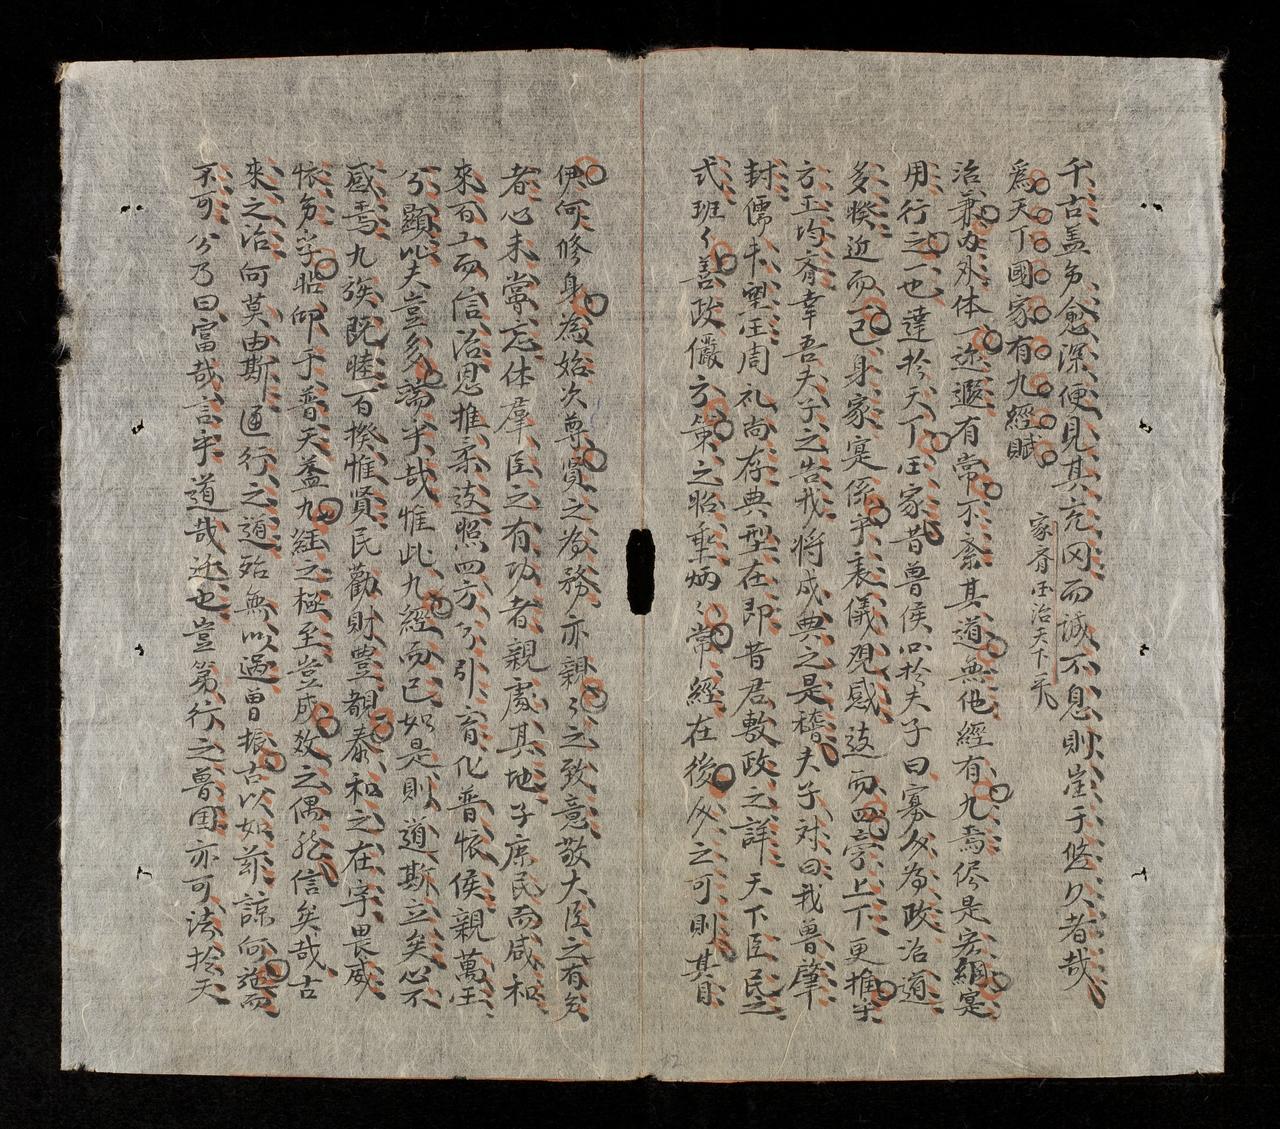 千古盖多愈深便見其充冈而誠不息則崖于悠久者哉
爲天下國家有九經賦
家齊国治天下平
治兼内外体一近遐有常不紊其道無他經有九焉侭是宏綱寔
用行之一也達於天下国家哉昔魯侯问於夫子曰寡多為政治道
多揆近而己身家寔係乎表儀观感这而四旁上下更推乎
方王均齊幸吾夫子之告戒將成典之是稽夫子对曰我魯肇
封儒未墜王周礼尚存典型在即昔君敷政之詳天下臣民之
式班〻善政儼方策之昭垂炳〻常經在後多之可則其目
伊何修身為始次尊賢之為務亦親〻之致意敬大臣之有多
者心未嘗忘体羣臣之有功者親處其地子庶民而咸和
來百工而信治恩推柔这照四方分引育化普懷侯親萬王
分顯此夫豈多端乎哉惟此九經而已如是則道斯立矣心不
惑焉九族既睦百揆惟賢民勸財豊覩泰和之在宇畏威
懷多字帖仰于普天盖九經之極至豈成效之偶然信矣哉古
來之治何莫由斯通行之道殆無以過曾振古以如茲諒何莚而
不可分乃曰富哉言乎道哉迩也豈第行之魯国亦可法於天